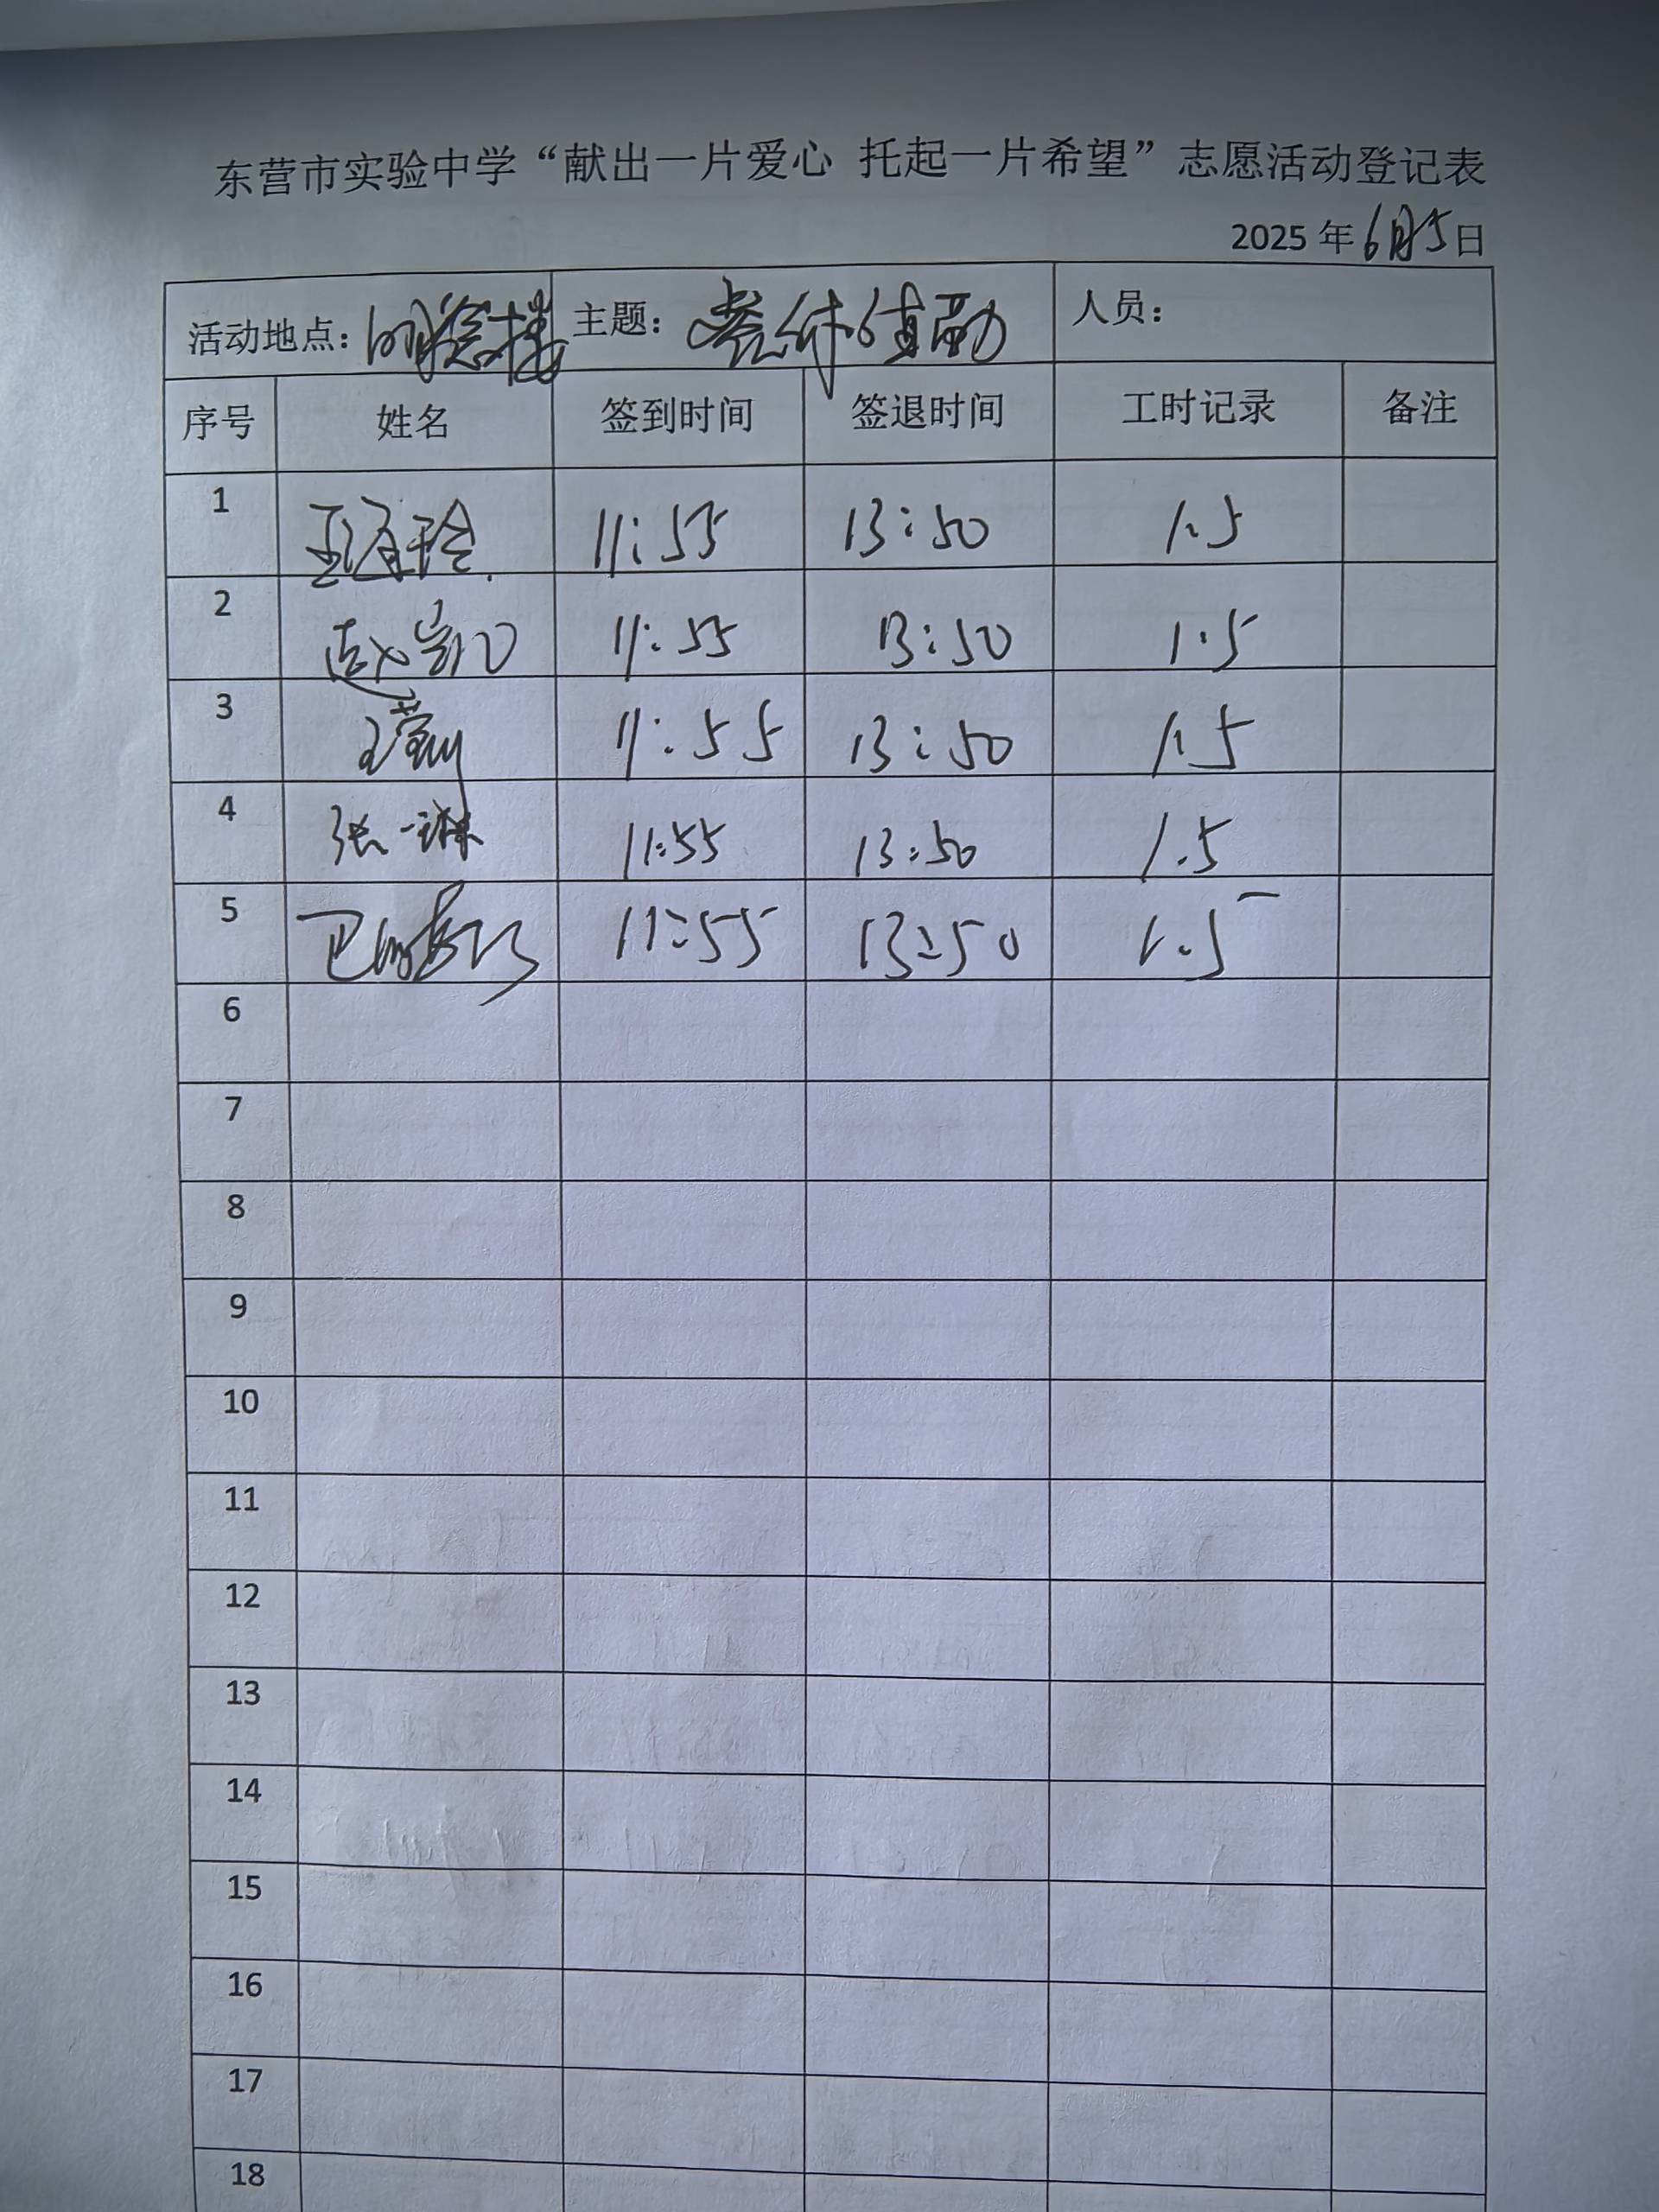 东营市实验中学“献出一片爱心 托起一片希望”志愿活动登记表
2025年6月5日
活动地点：明德楼 主题：餐休值勤 人员：
序号 姓名 签到时间 签退时间 工时记录 备注
1 11:55 13:50 1.5
2 11:55 13:50 1.5
3 王莹莹 11:55 13:50 1.5
4 张一琳 11:55 13:50 1.5
5 11:55 13:50 1.5
6
7
8
9
10
11
12
13
14
15
16
17
18